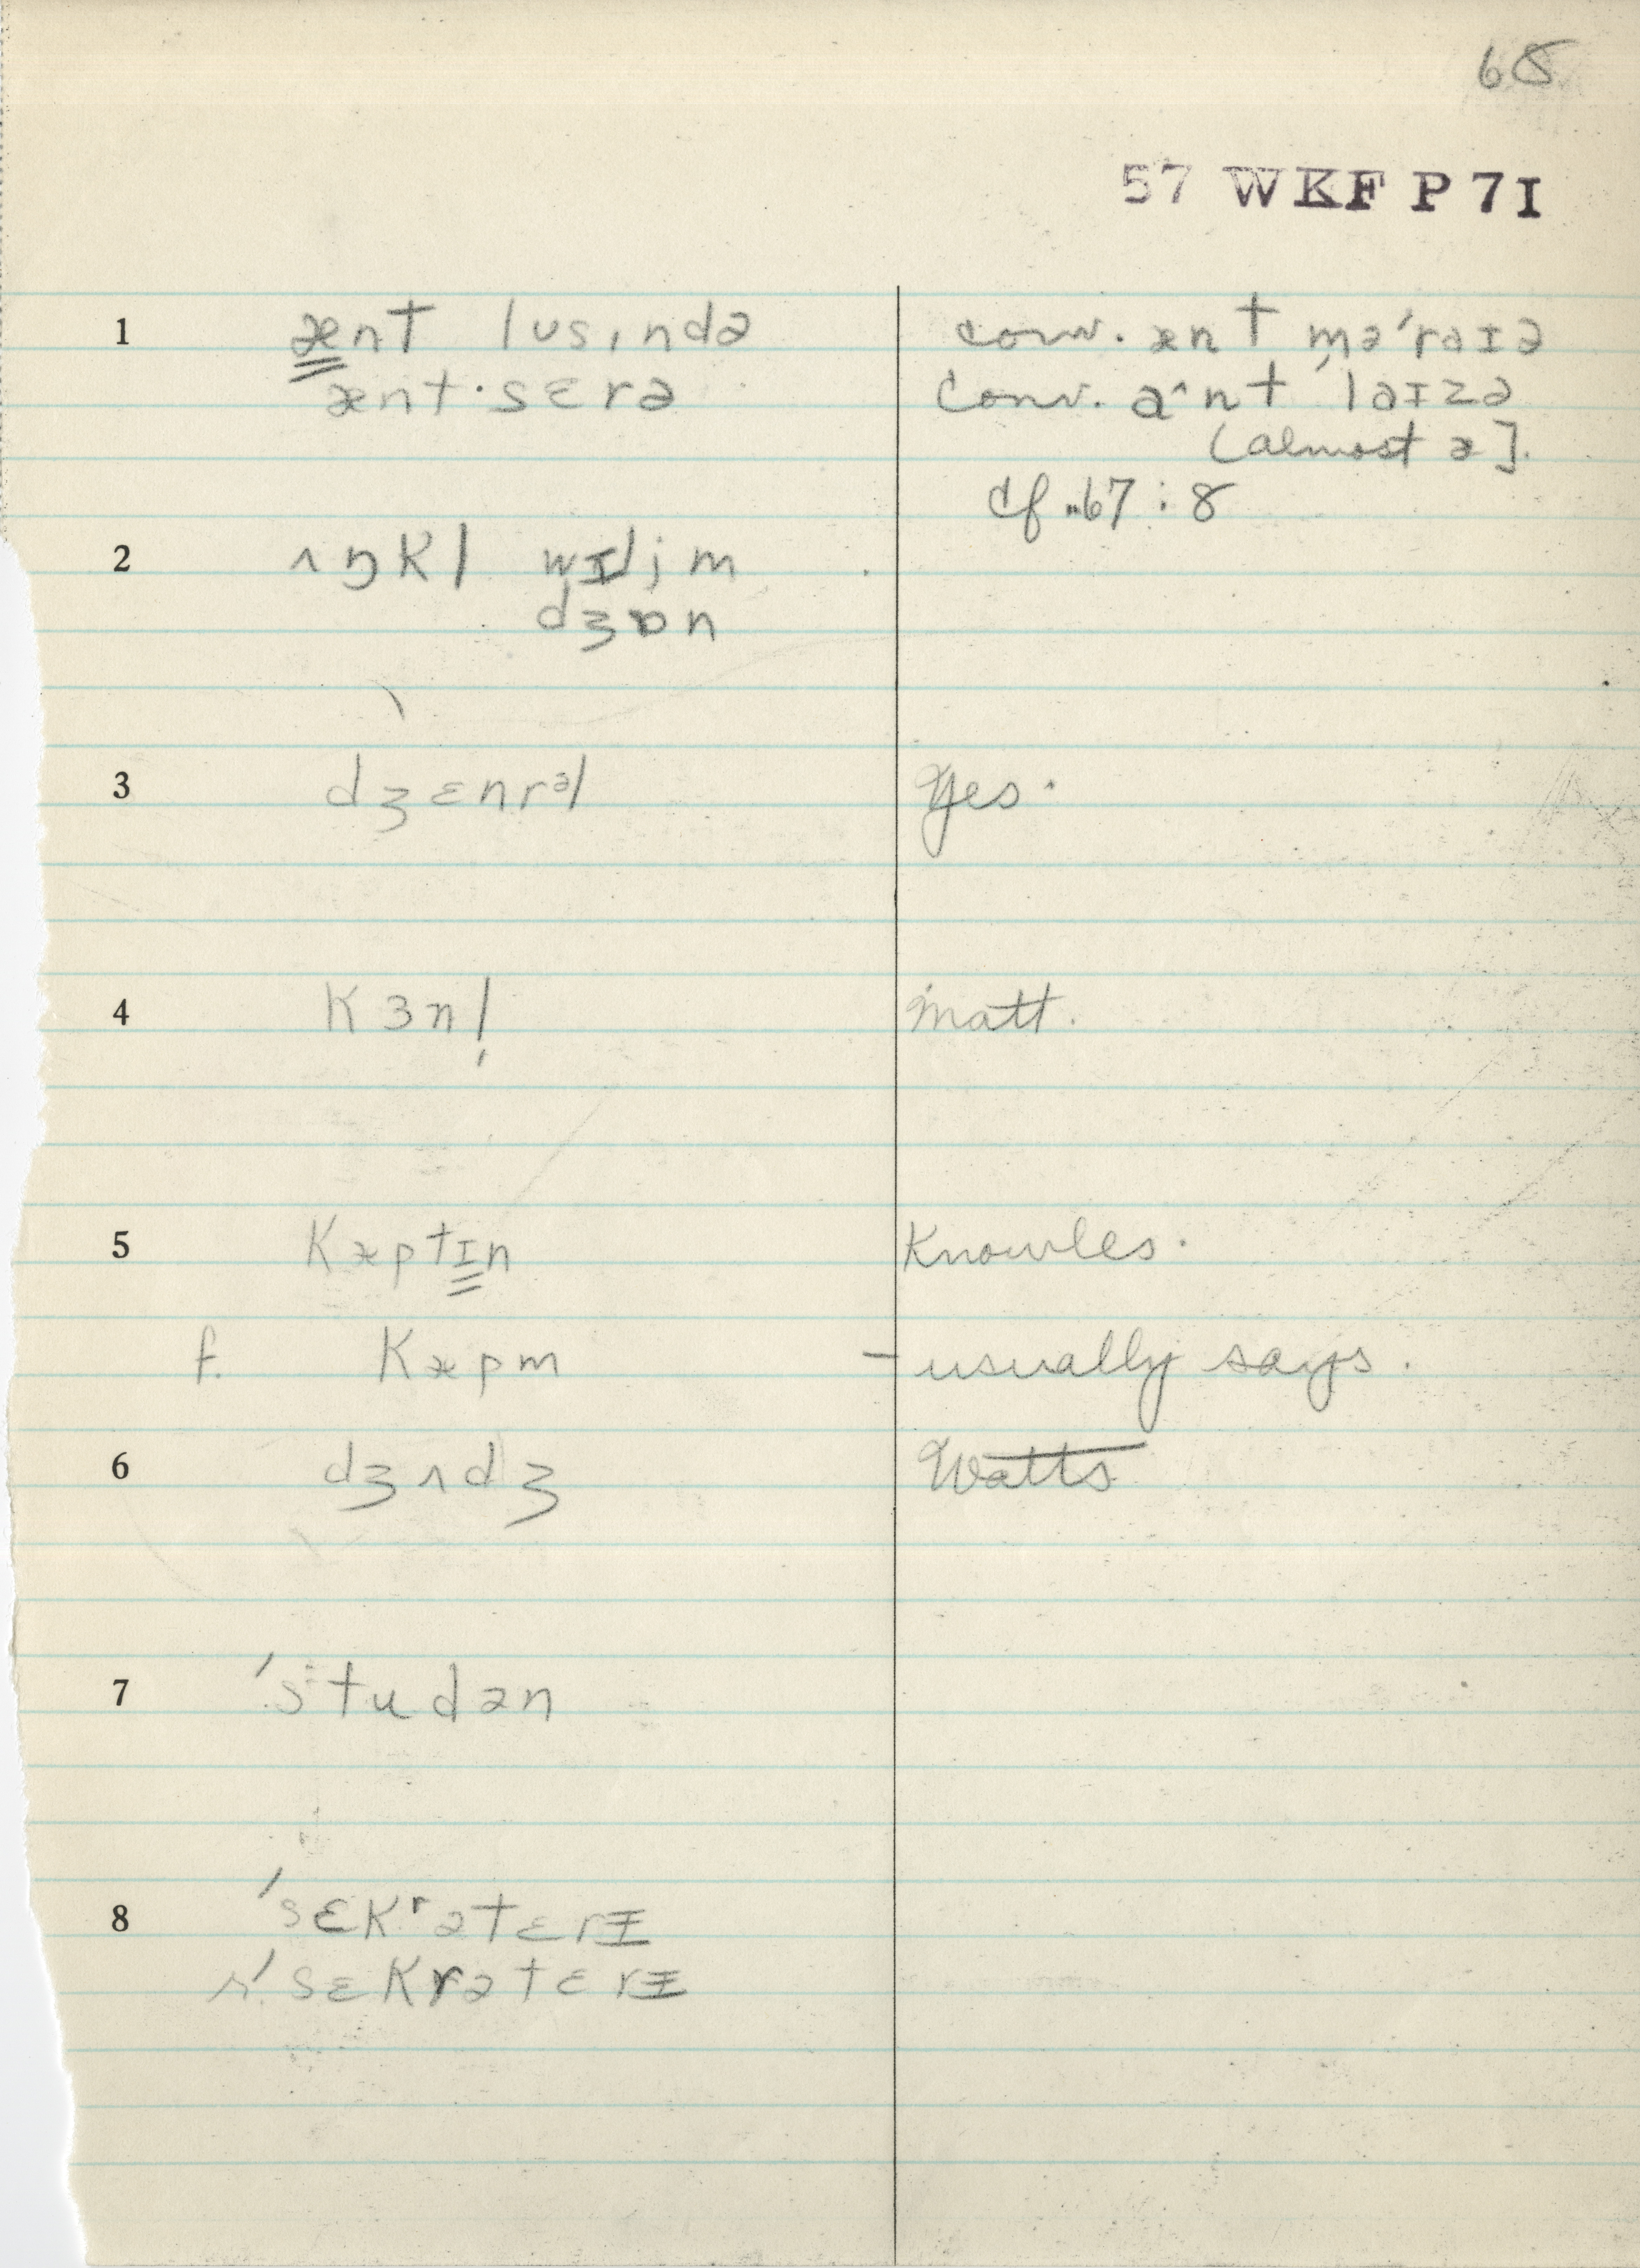 68
57 WKF P 7I
1 ænt lusɪndə conv. ænt mə'raɪə
ænt·sɛrə conv. aˆnt 'laɪzə
[almost æ].
cf. 67:8
2 ʌŋkl wɪljm
dʒɒn
3 dʒɛnrəl Yes.
4 kɜnl̩ Matt.
5 kæptɪn Knowles.
f. kæpm – usually says.
6 dʒʌdʒ Watts
7 'studən
8 'sɛkʳətɛrɪ
r. 'sɛkrətɛrɪ